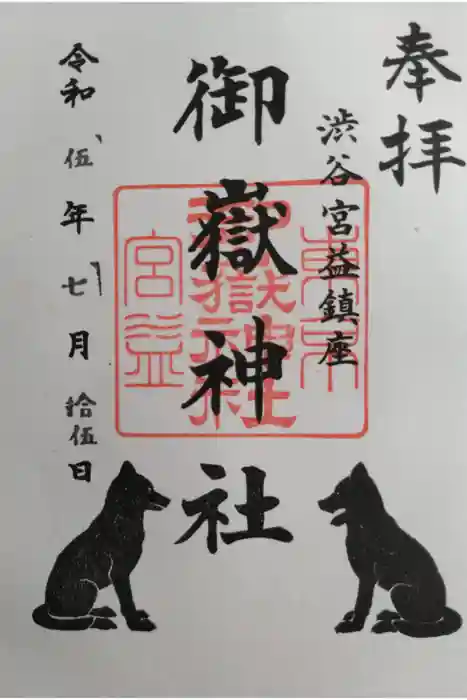 奉拝
渋谷宮益鎮座
御嶽神社
東京
御嶽神社
宮益
令和伍年七月拾伍日